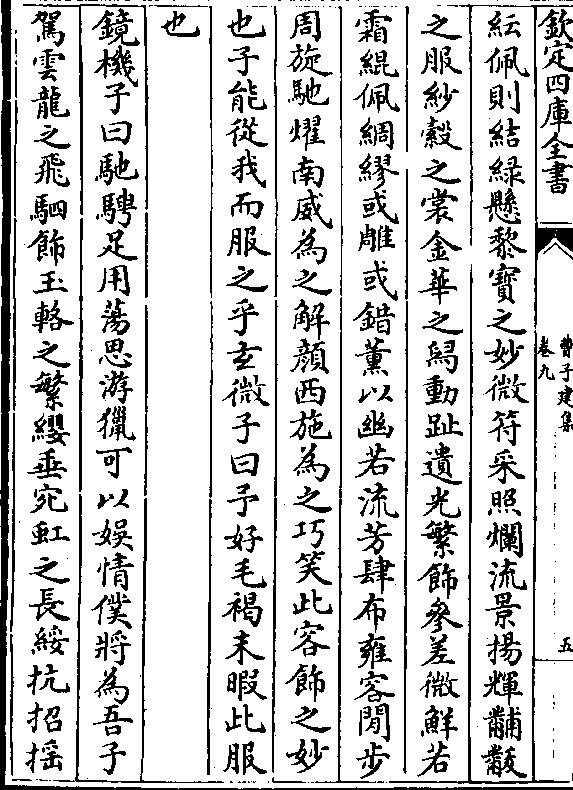 欽定四庫全書
曹子建集
卷九
五
紜佩則結緑懸黎寳之妙微符采照爛流景揚輝黼黻
之服紗縠之裳金華之舄動趾遺光繁飾參差微鮮若
霜緄佩綢繆或雕或錯薰以幽若流芳肆布雍容閒步
周旋馳燿南威為之解顔西施為之巧笑此容飾之妙
也子能從我而服之乎玄微子曰予好毛褐未暇此服
也
鏡機子曰馳騁足用蕩思游獵可以娛情僕將為吾子
駕雲龍之飛駟飾玉輅之繁纓垂宛虹之長綏抗招揺